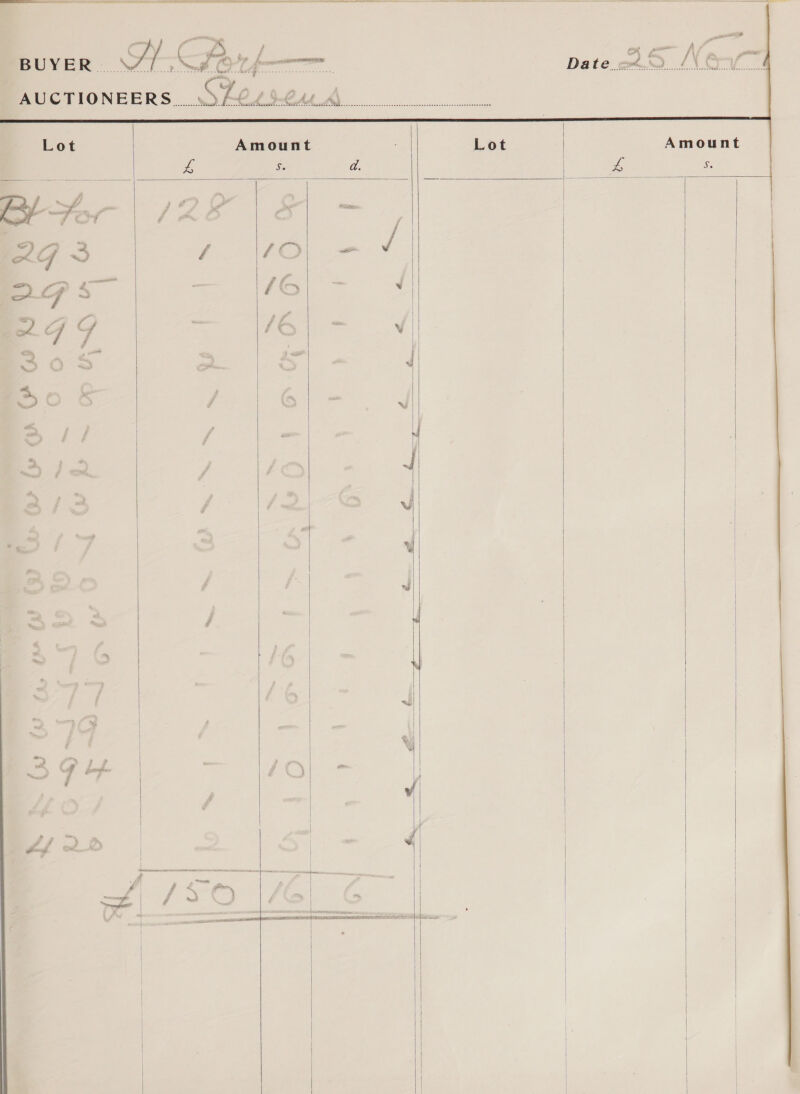 BUYER H. Port
Date 25 Nov
AUCTIONEERS Stevens
Lot Amount Lot Amount
£ s. d. £ s.
Bt for 128 8 -
293 1 10 - ✓
295 - 16 - ✓
299 - 16 - ✓
305 2 5 - ✓
308 1 6 - ✓
311 1 - - ✓
312 1 10 - ✓
313 1 12 6 ✓
317 3 5 - ✓
320 1 1 - ✓
323 1 - - ✓
376 - 16 - ✓
377 - 16 - ✓
379 1 - - ✓
394 - 10 - ✓
401 1 - - ✓
420 2 5 - ✓
£ 150 16 6